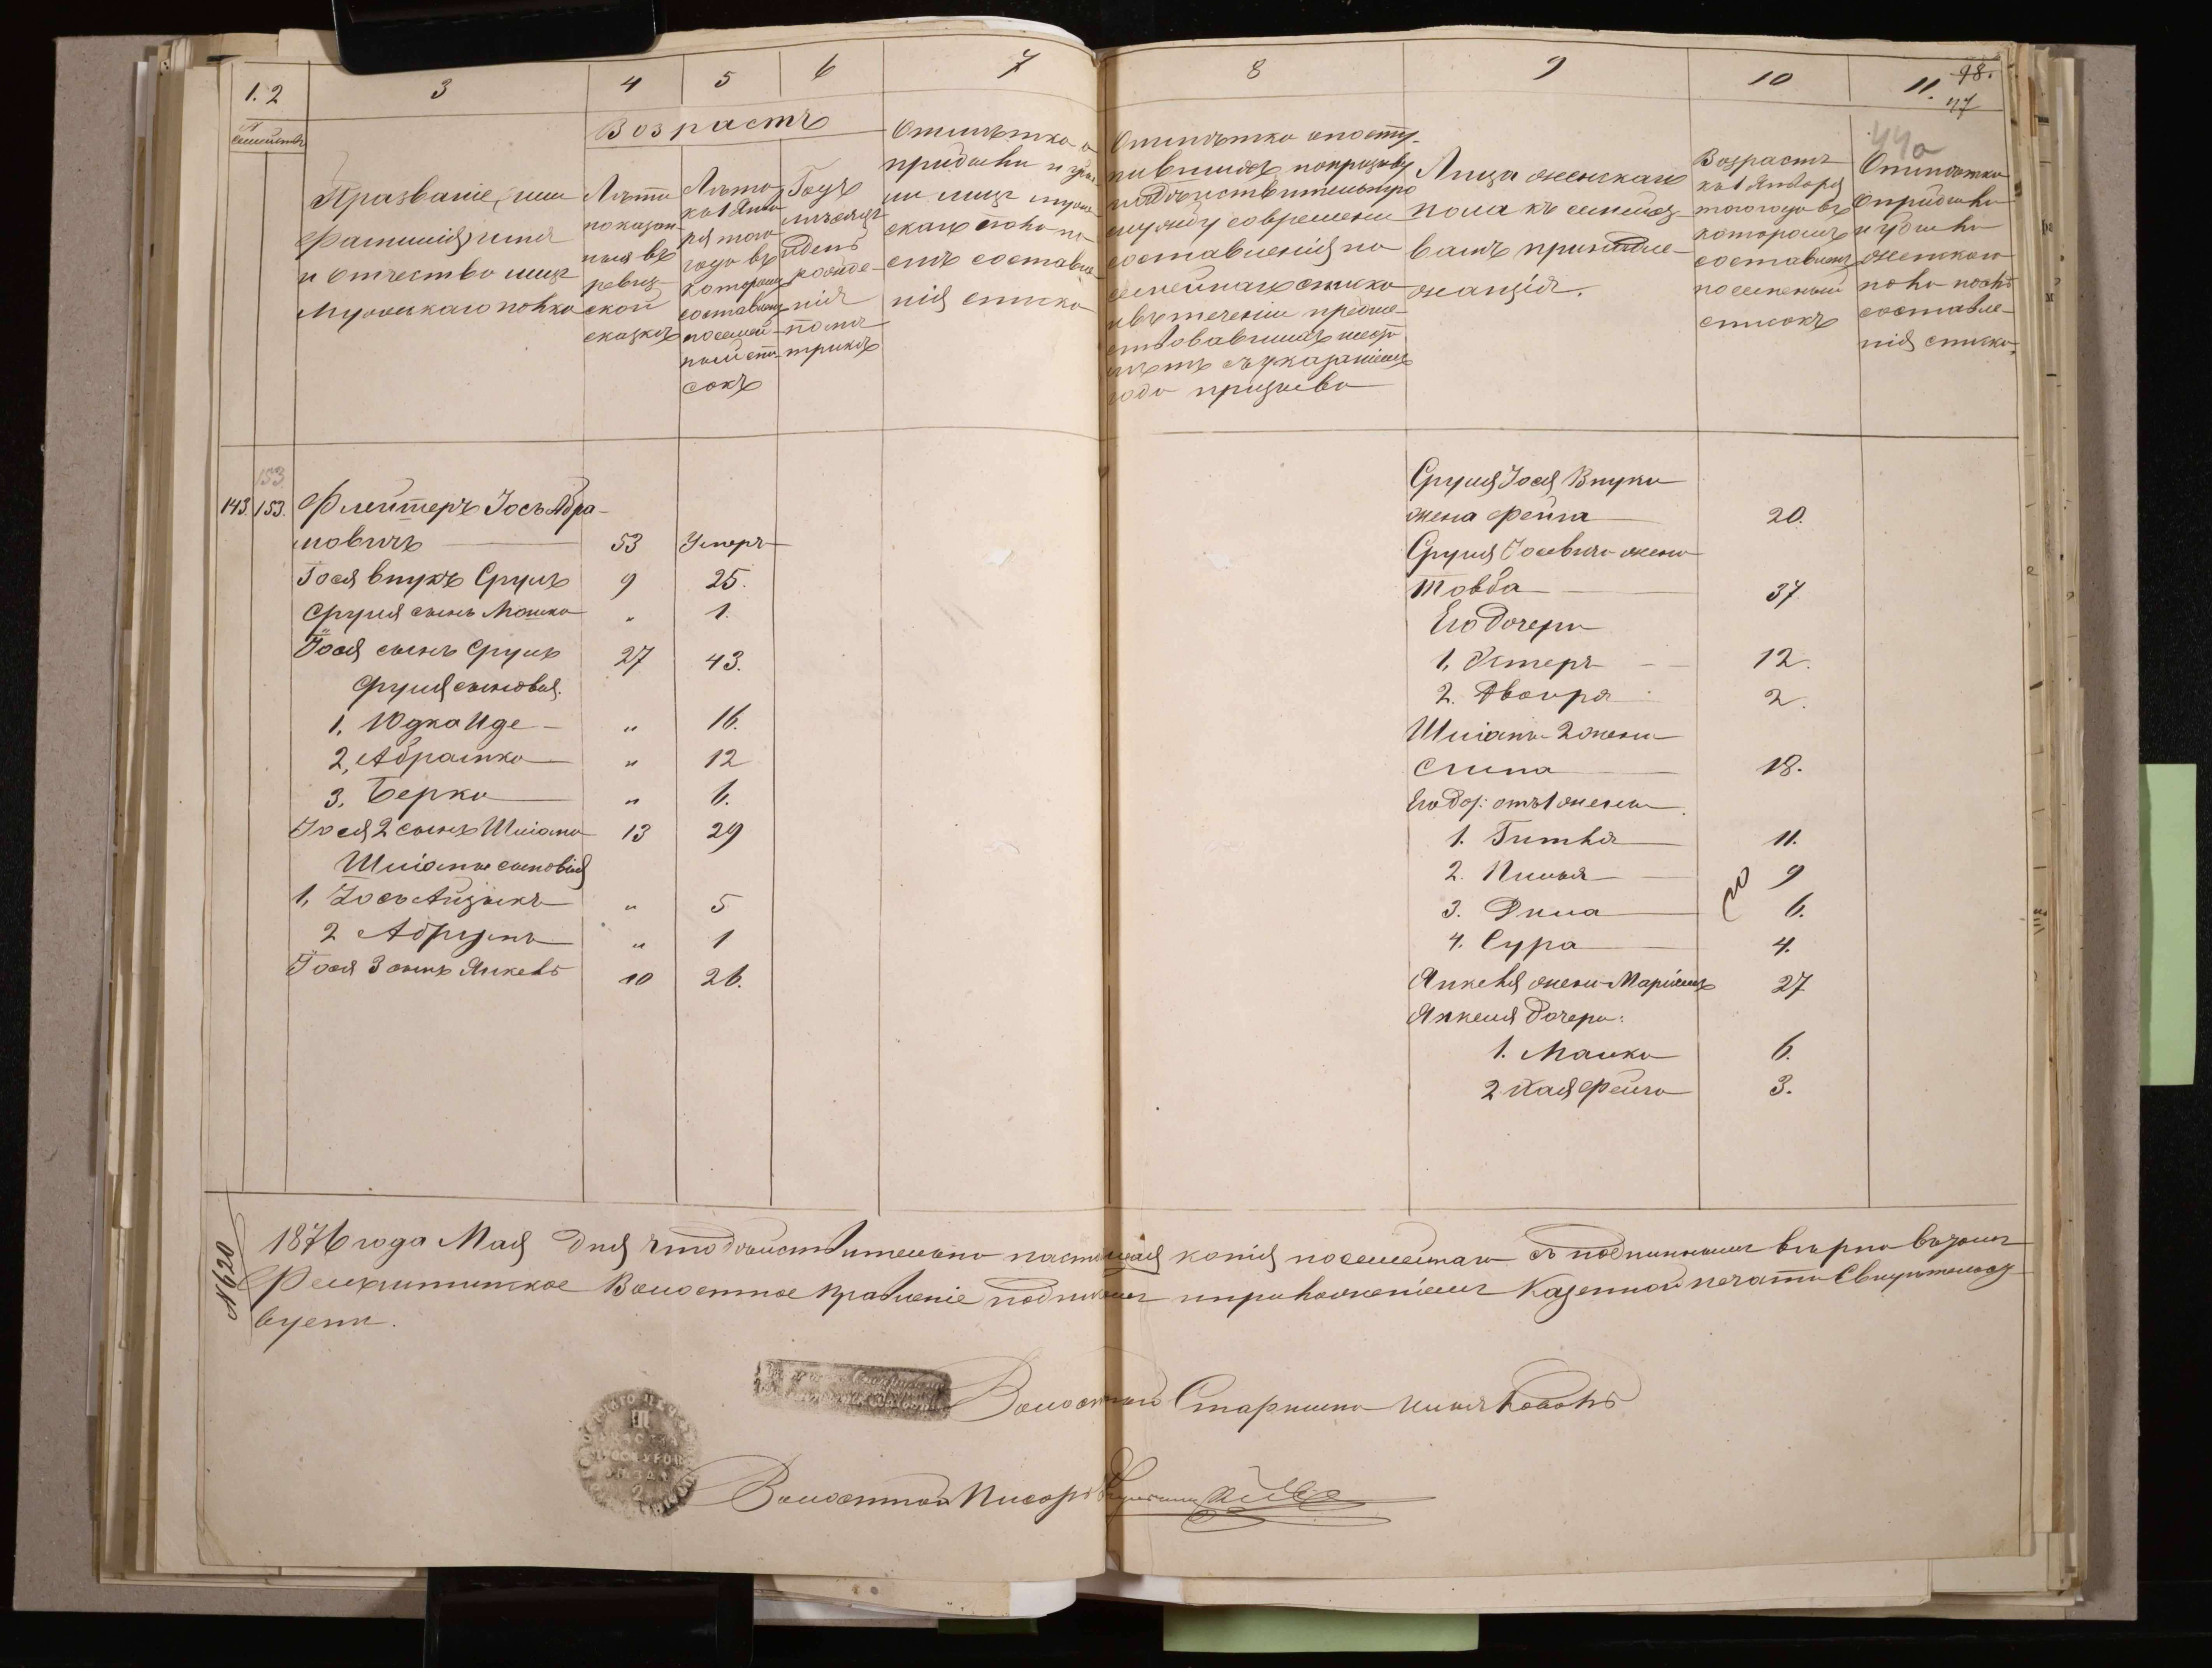 1. 2
3
4
5
6
7
8
9
10
11.
98.
97
44а
№
семействъ
Прозваніе, или
фамилія, имя
и отчество лицъ
мужескаго полка
Возрастъ
Лѣта
показан-
ныя въ
ревиз-
ской
сказкѣ
Лѣта
къ 1 Янва
ря того
года въ
которомъ
составленъ
посемей-
ный спи-
сокъ
Годъ
мѣсяцъ
день
рожде-
нія
по ме-
трикѣ
Отмѣтка о
прибыли и убы
ли лицъ муже
скаго пола по
слѣ составле
нія списка
Отмѣтка о посту-
пившихъ по призыву
на дѣйствительную
службу со времени
составленія по
семейнаго списка
и въ теченіи предше-
ствовавшихъ шести
лѣтъ съ указаніемъ
года призыва
Лица женскаго
пола къ семейст
вамъ принадле-
жащія.
Возрастъ
къ 1 Января
того года въ
которомъ
составленъ
посемейный
списокъ
Отмѣтка
о прибыли
и убыли
женскаго
пола послѣ
составле-
нія списка
153
143. 153. Флейтеръ Іось Абра-
мовичъ 53 Умеръ
Іося внукъ Сруль 9 25.
Сруля сынъ Мошко " 1.
Іося сынъ Сруль 27 43.
Сруля сыновья.
1, Юдка Иде " 16.
2, Абрамко " 12
3, Берко " 6.
Іося 2 сынъ Шліома 13 29
Шліомы сыновія
1, Іось Айзыкъ " 5
2 Абрумъ " 1
Іося 3 сынъ Янкель 10 26.
Сруля Іося Внука
жена Фейга 20.
Сруля Іосевича жена
Товба 37
Его дочери
1, Эстеръ 12.
2. Двойра 2.
Шліомы 2 жена
Слипа 18.
Его доч: отъ 1 жены
1. Гитля 11.
2. 9
3. Дина 6.
4. Сура 4.
Янкеля жена Маріемъ 27
Янкеля дочери:
1. Малка 6.
2 Хая Фейга 3.
№ 620
1876 года Мая дня что дѣйствительно настоящая копія посемейнаго съ подлиннымъ вѣрна въ томъ
Волостное Правленіе подписомъ и приложеніемъ Казенной печати Свидѣтельст
вуетъ.
Волостной Старшина
Волостной Писарь